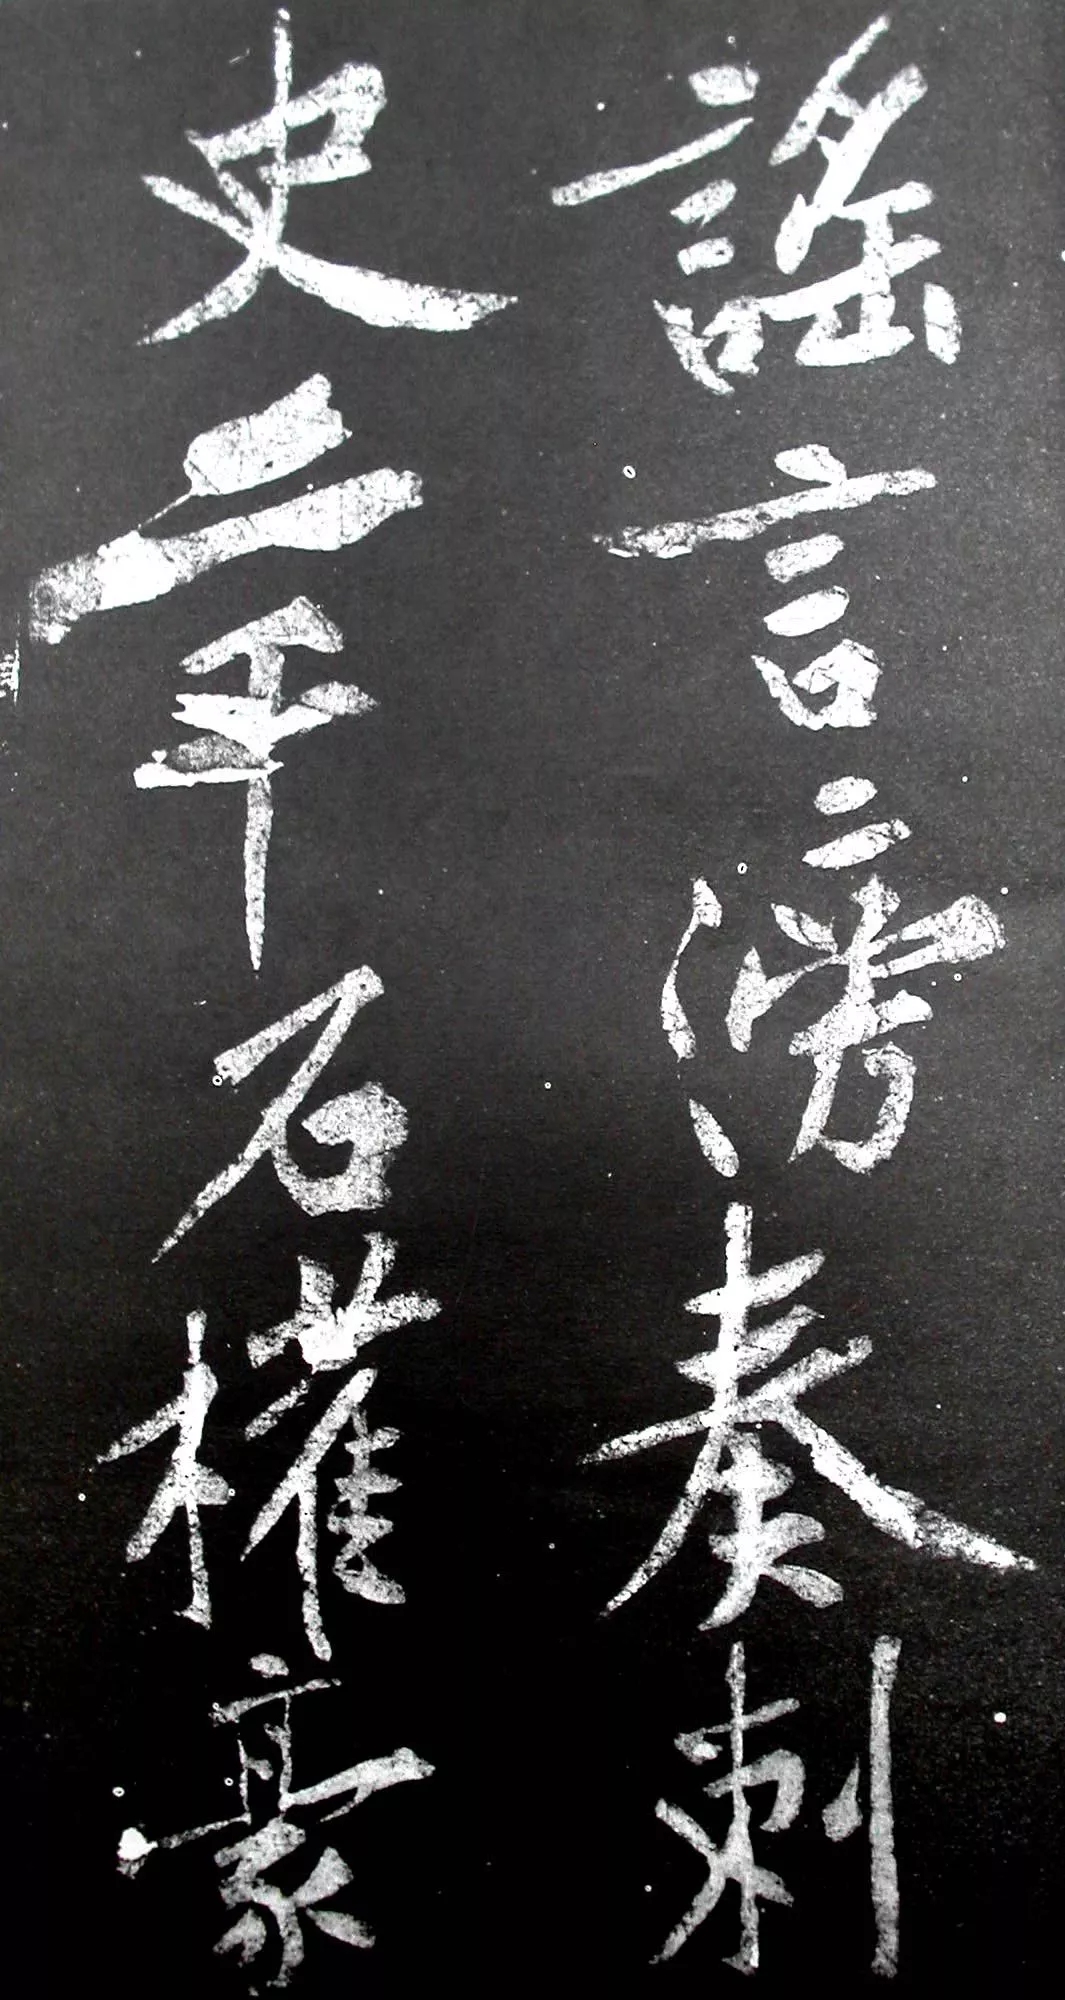 謠言滂奏刺
史二千石權豪